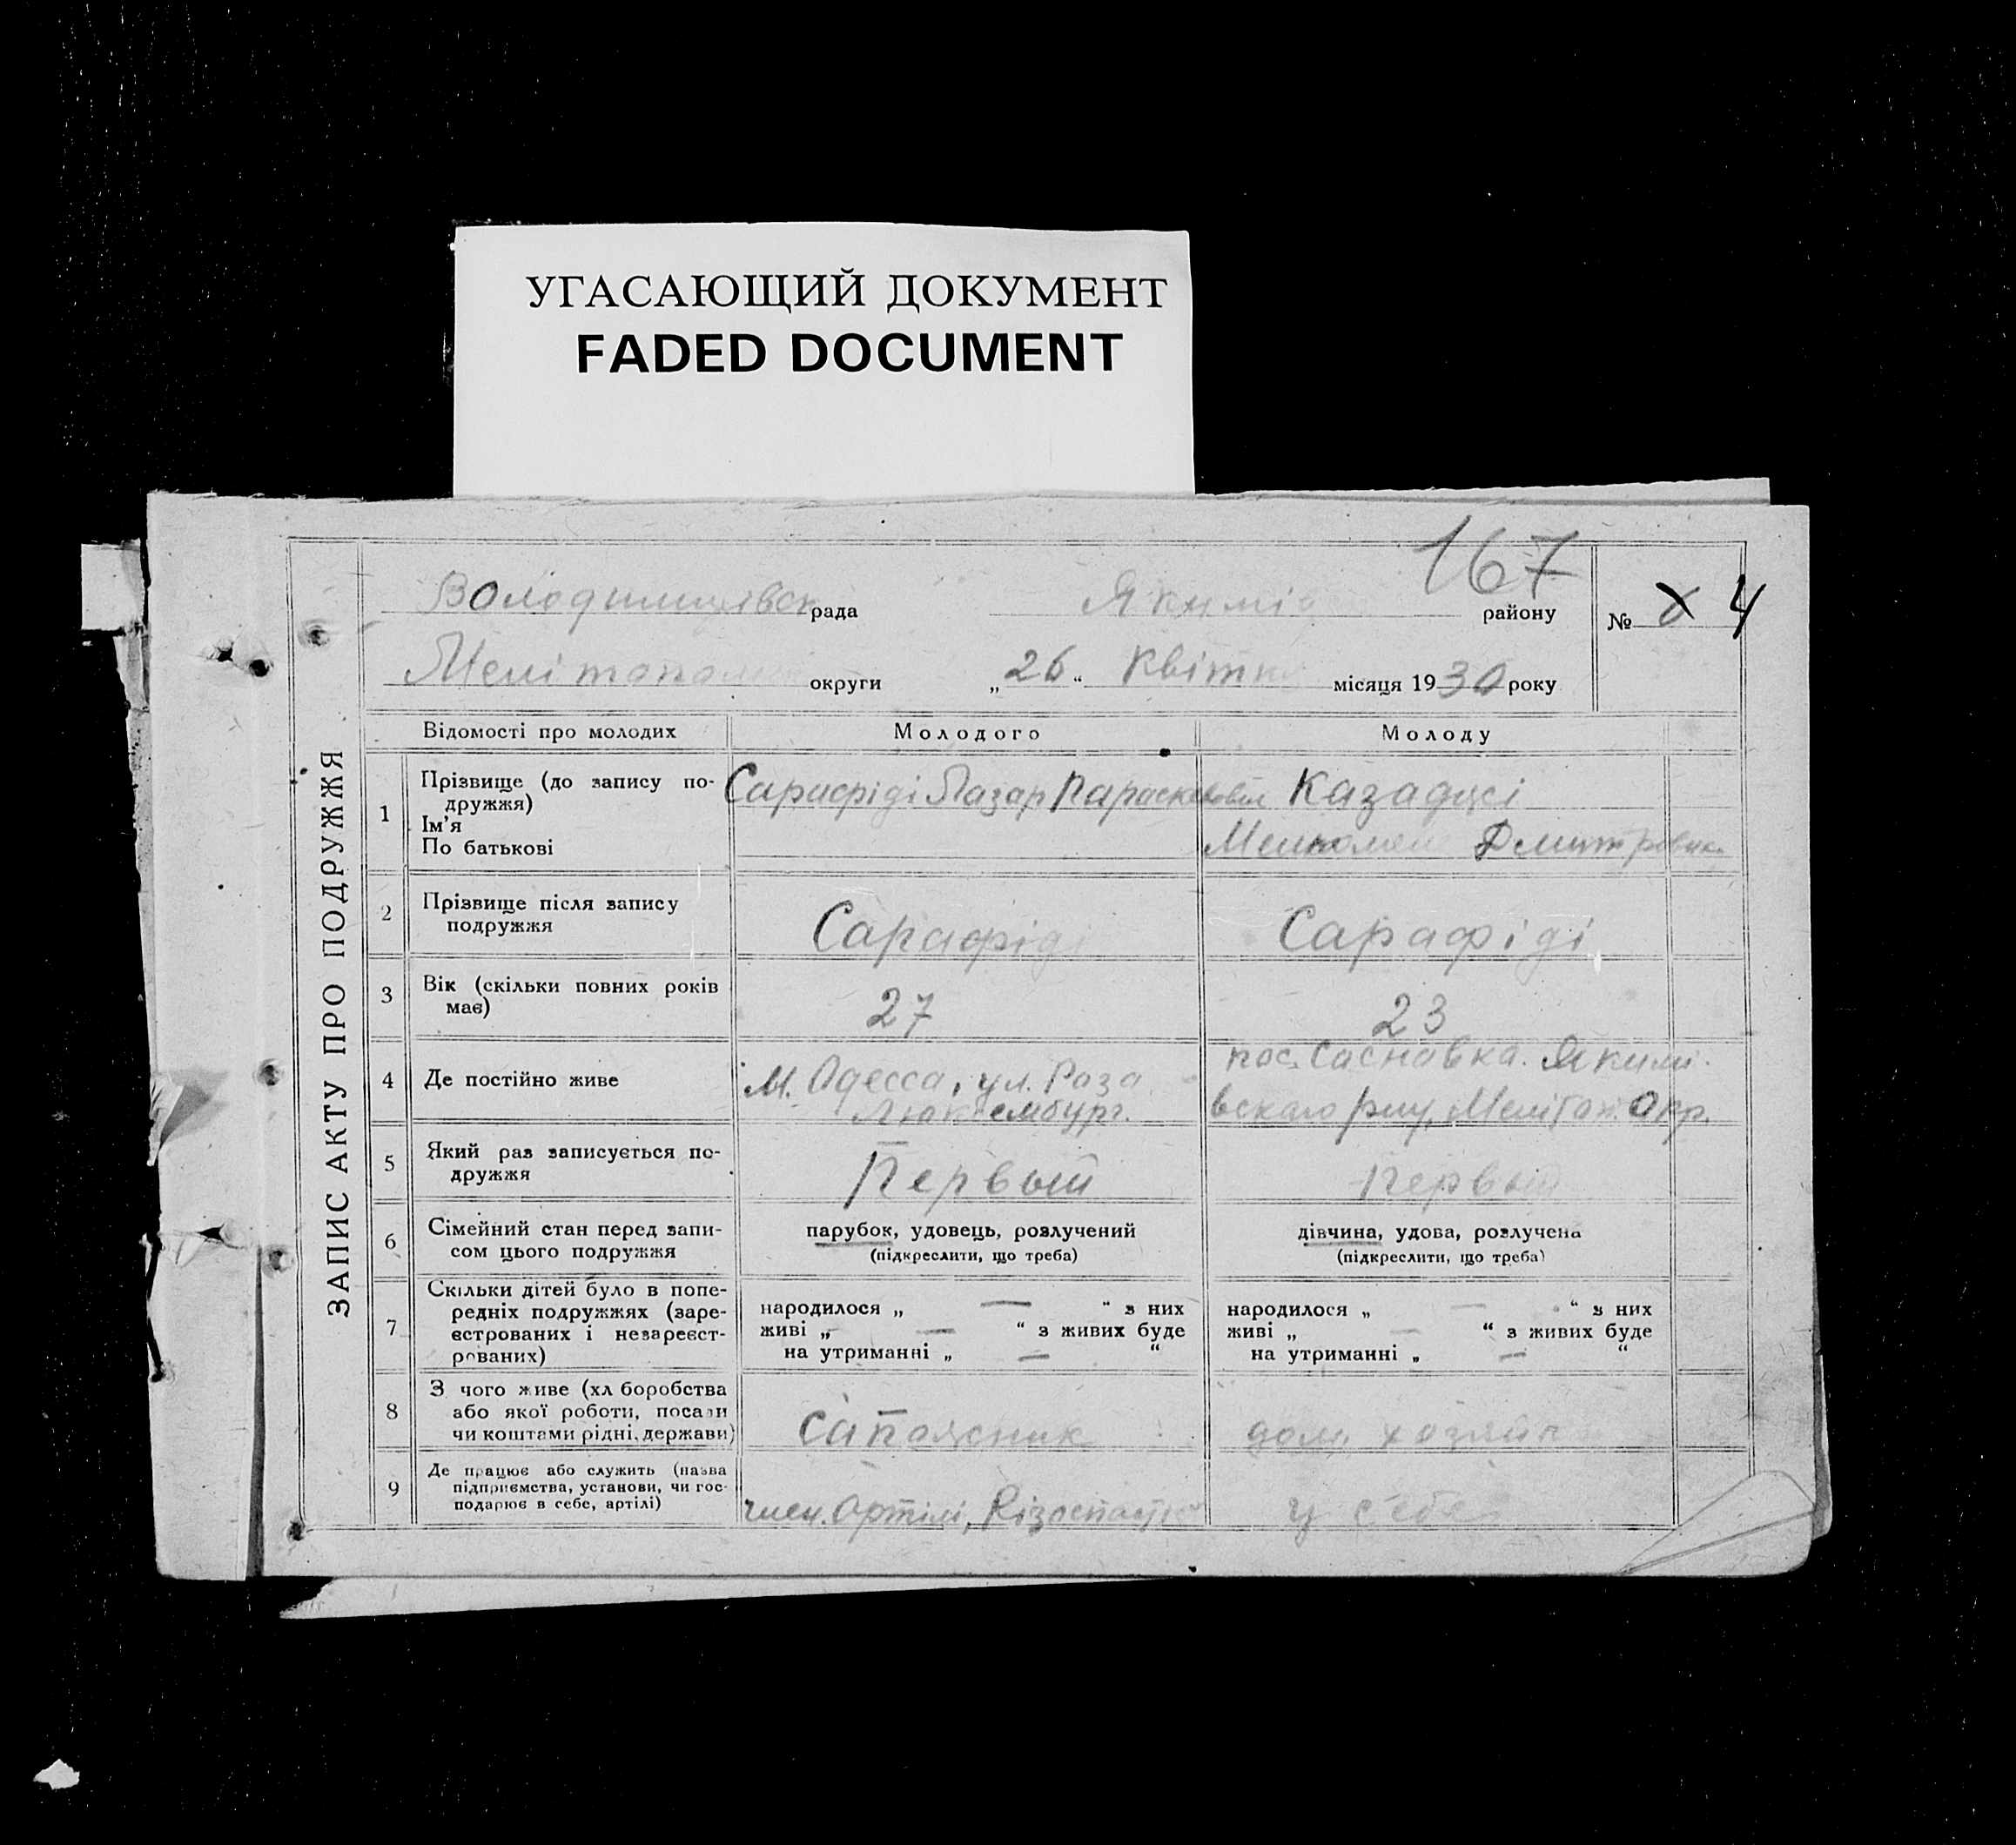 УГАСАЮЩИЙ ДОКУМЕНТ
FADED DOCUMENT
167
рада Якимі району № 4
Мелітопол округи „26“ Квітня місяця 1930 року
ЗАПИС АКТУ ПРО ПОДРУЖЖЯ
Відомості про молодих Молодого Молоду
1 Прізвище (до запису по-
дружжя)
Ім'я
По батькові
Сарафіді Лазар Казадусі
Дмитровна
2 Прізвище після запису
подружжя
Сарафіді Сарафіді
3 Вік (скільки повних років
має)
27 23
4 Де постійно живе
М. Одесса, ул. Роза
Люксембург.
пос. Саснавка. Якими-
вскаго Меліtоп. Окр.
5 Який раз записується по-
дружжя
Первый Первый
6 Сімейний стан перед запи-
сом цього подружжя
парубок, удовець, розлучений
(підкреслити, що треба)
дівчина, удова, розлучена
(підкреслити, що треба)
7 Скільки дітей було в попе-
редніх подружжях (заре-
єстрованих і незареєст-
рованих)
народилося „ — “ з них
живі „ — “ з живих буде
на утриманні „ — “
народилося „ — “ з них
живі „ — “ з живих буде
на утриманні „ — “
8 З чого живе (хл боробства
або якої роботи, посади
чи коштами рідні, держави)
Сапожник дом. хозяйк
9 Де працює або служить (назва
підприємства, установи, чи гос-
подарює в себе, артілі)
член. Артілі, у себе